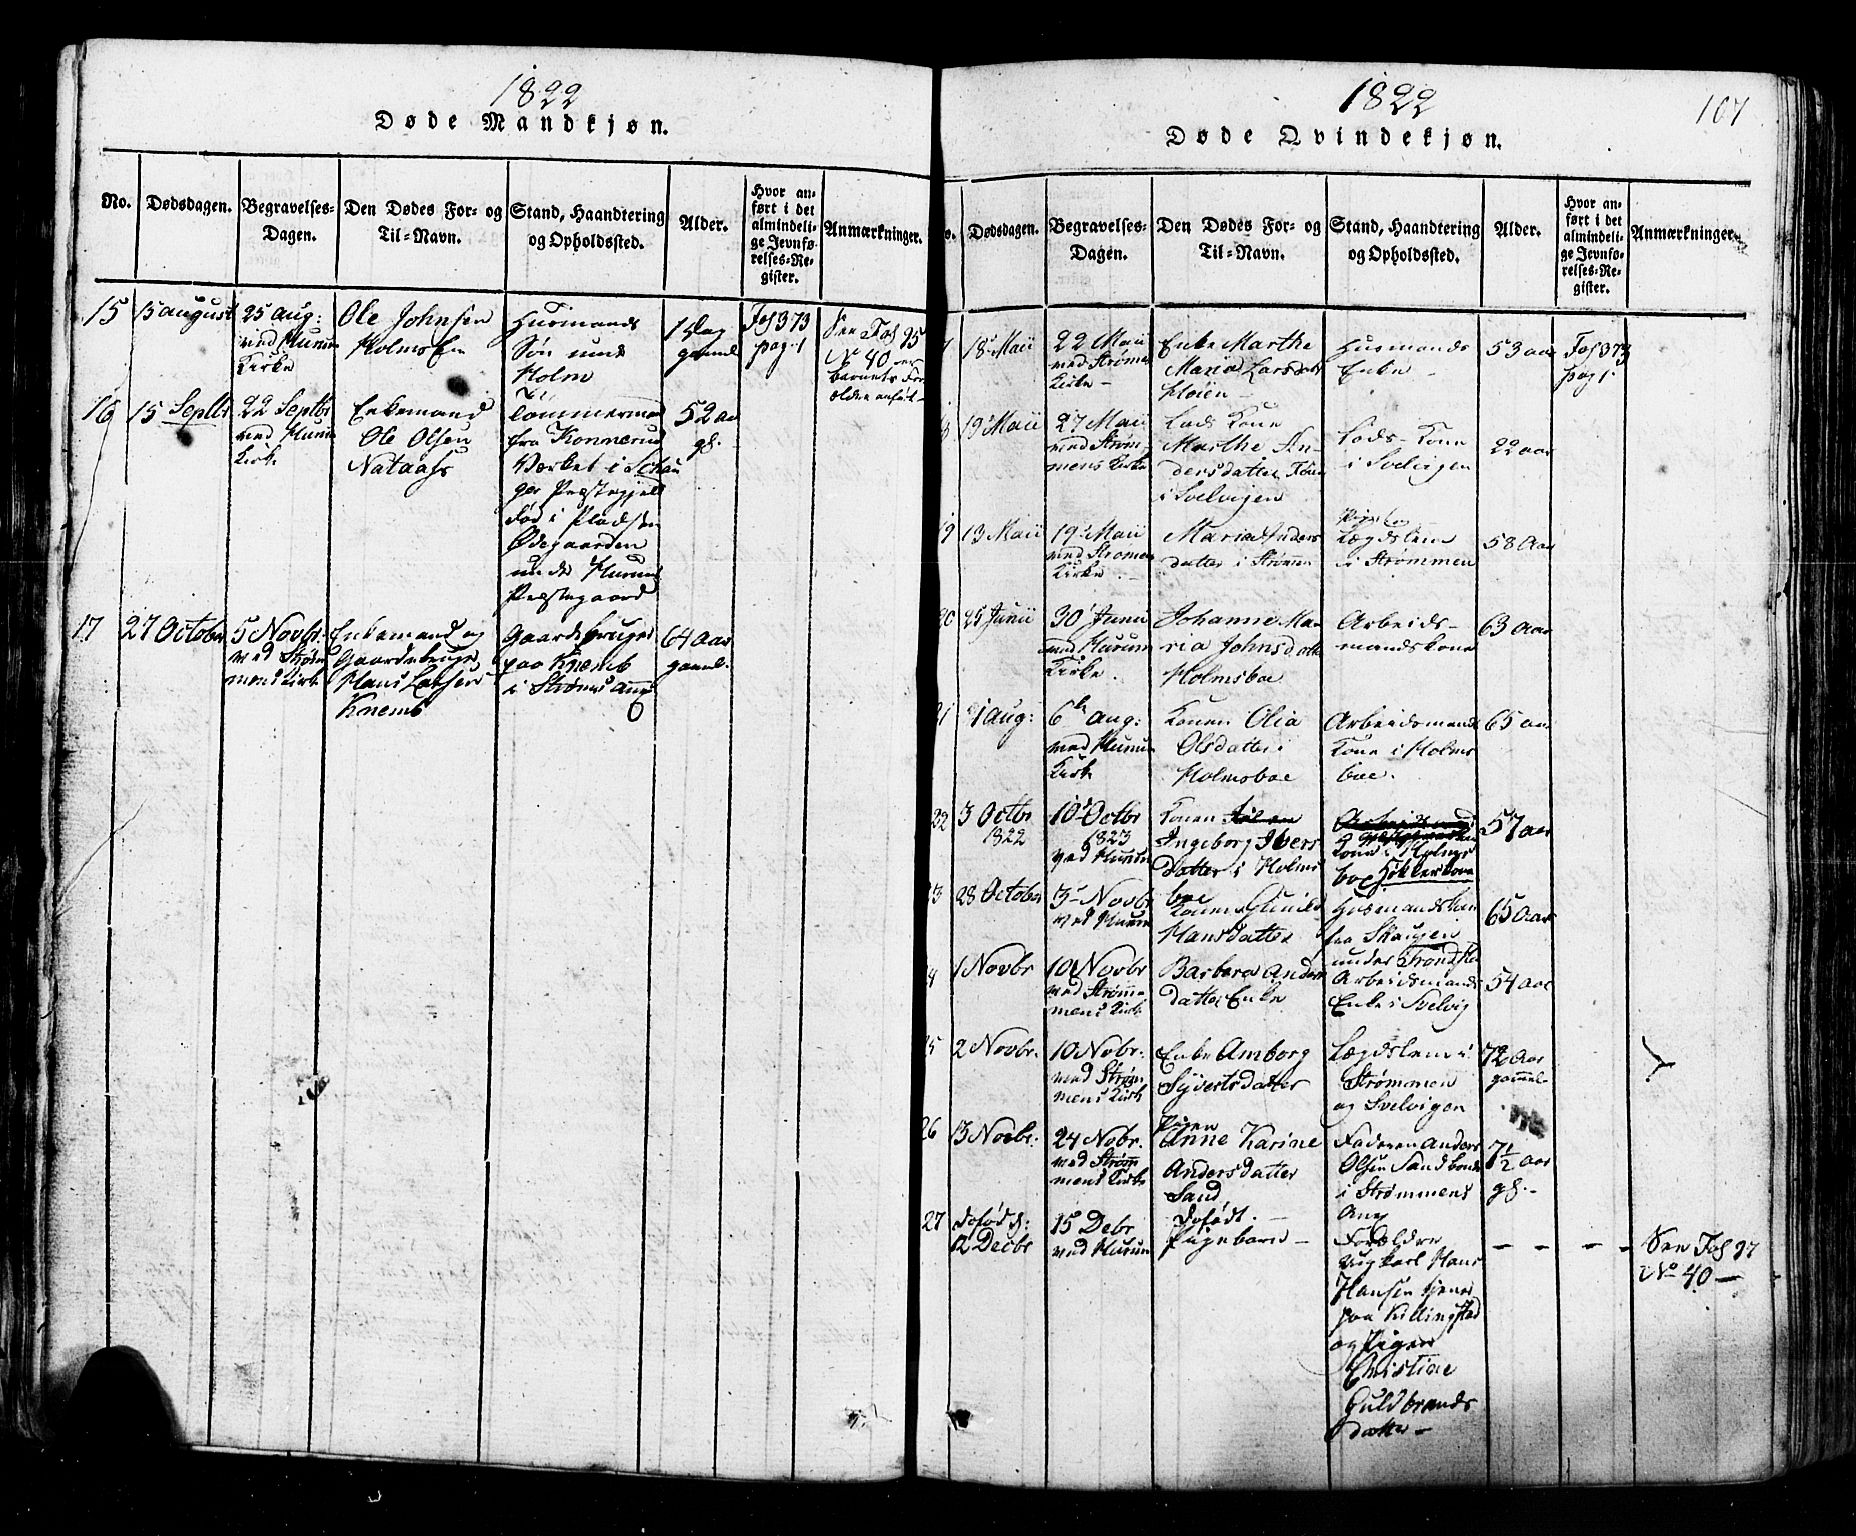 1822
Døde Mandkjøn.
No.
Dødsdagen.
Begravelses-
Dagen.
Den Dødes For- og
Til-Navn.
Stand, Haandtering
og Opholdssted.
Alder.
Hvor an-
ført i det
almindeli-
ge Jevnfø-
relses-Re-
gister.
Anmærkninger.
15
15 august
25 aug:
ved Hurum
Kirke
Ole Johnsen
Holmsen
Huusmands
Søn under
Holm
1 Dag
gammel
Fol 373
pag. 1
See Fol 95
No 40 hvor
barnets For
ældre anført
16
15 Septbr
22 Septbr
ved Hurum
Kirke
Enkemand
Ole Olsen
Nataas
Tømmermand
fra Konnerud
Værket i Schou
ger Præstegjeld
Fød i Pladsen
Ødegaarden
under Hurums
Præstegaard
52 aar
gl.
17
27 October
5 Novbr.
ved Strøm
mens Kirke
Enkemand og
Gaardebruger
Hans Larsen
Knems
Gaardebruger
paa Knems
i Strøms Ang
64 Aar
gammel.
1822
107
Døde Qvindekjøn.
Dødsdagen.
Begravelses-
Dagen.
Den Dødes For- og
Til-Navn.
Stand, Haandtering
og Opholdssted.
Alder.
Hvor an-
ført i det
almindeli-
ge Jevnfø-
relses-Re-
gister.
Anmærkninger.
7
18 Maii
22 Maii
ved Strømens
Kirke
Enke Marthe
Maria Larsdatter
Høien
Huusmands
Enke
53 aar
Fol 373
pag 1.
8
19 Maii
27 Maii
ved Strøm-
mens Kirke
Lods Kone
Marthe An-
dersdatter
i Svelvigen
Lods-Kone
i Svelvigen
22 aar
9
13 Maii
19 Maii
ved Strømens
Kirke
Maria Anders
datter i Strømmen
Lægdslem
i Strømmen
58 Aar
20
25 Junii
30 Junii
ved Hurum
Kirke
Johanne Ma-
ria Johnsdatter
Holmsboe
Arbeids-
mandskone
63 Aar
21
1 aug:
6 aug:
ved Hurum
Kirke
Konen Olia
Olsdatter i
Holmsboe
Arbeidsmands
Kone i Holms
boe.
65 aar
22
3 Octbr
1822
10 Octbr
1823
ved Hurum
Konen
Ingeborg Ivers
datter i Holms
boe
Kone i Holms
boe Høkkerkone
57 aar
23
28 October
3 Novbr
ved Hurum
Konen Gunild
Hansdatter
Huusmandskone
fra Skaugen
under
65 Aar
4
1 Novbr
10 Novbr
ved Strøm-
mens Kirke
Barbara Anders
datter Enke
Arbeidsmands
Enke i Svelvig
54 aar
25
2 Novbr.
10 Nobr:
ved Strøm
mens Kirke
Enke Amborg
Syvertsdatter
Lægdslem i
Strømmen
og Svelvigen
72 Aar
gammel
26
13 Novbr.
24 Nobr.
ved Strøm
mens Kirke
Pigen
Anne Karine
Andersdatter
Sand
Faderen Anders
Olsen Sand bonde
i Strømmens
Ang
7 1/2 aar
gl.
27
Dødfødt
12 Decbr
15 Debr
ved Hurum
Dødfødt
Pigebarn
Forældre
Ungkarl Hans
Hansen tjener
paa Killingstad
og Pigen
Christine
Guldbrands
datter
See Fol 97
No 40